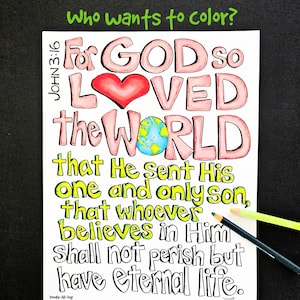 Who wants to color?
JOHN 3:16
For GOD so
LOVED
the WORLD
that He sent His
one and only son,
that whoever
believes in Him
shall not perish but
have eternal life.
Doodle-Art-Guy